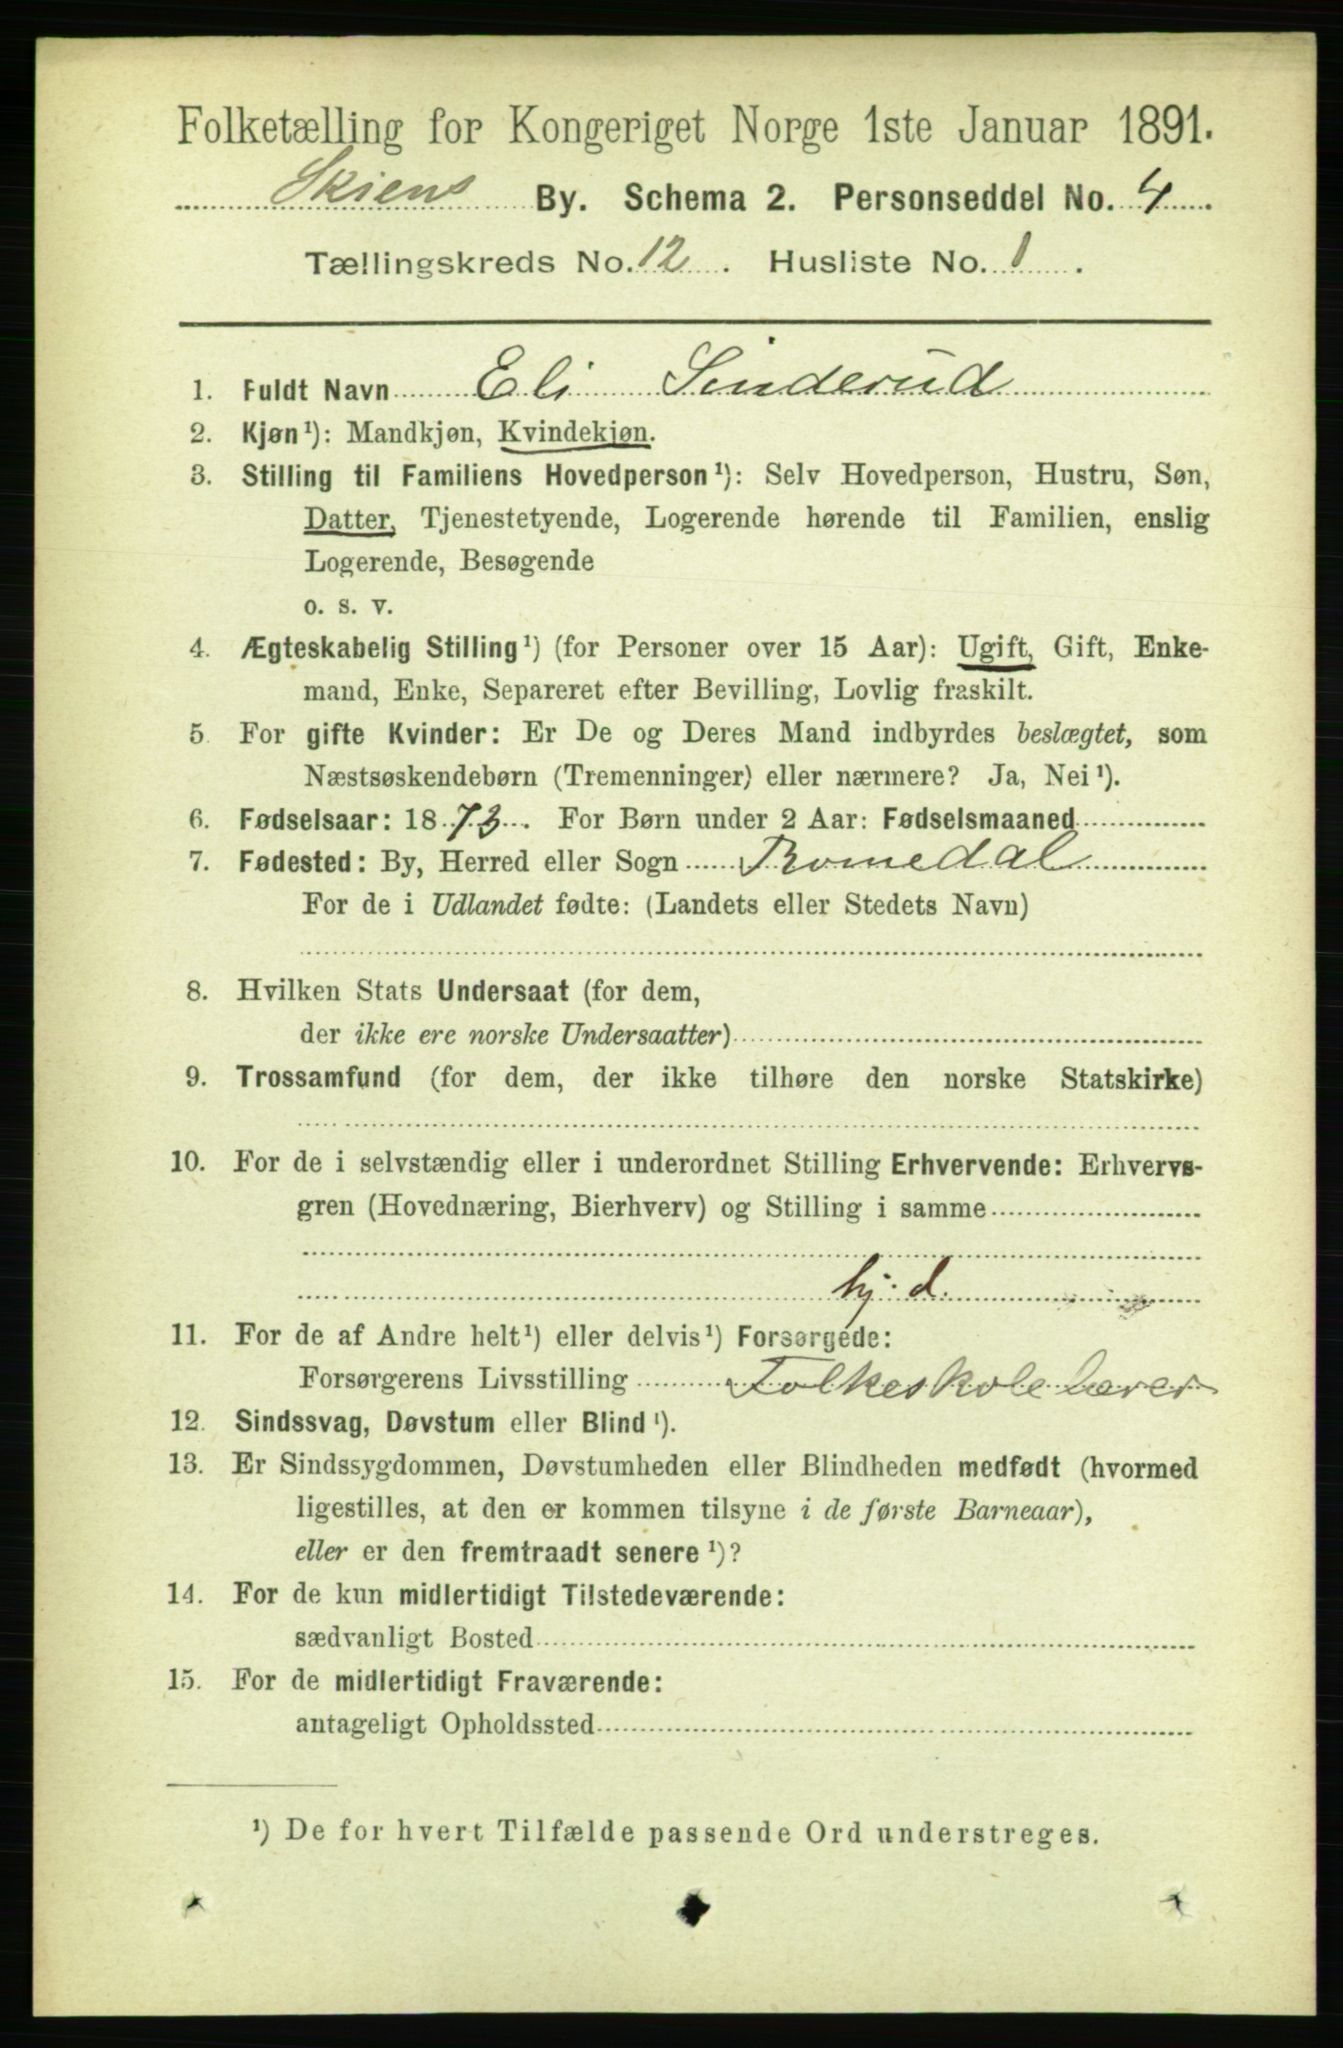 Folketælling for Kongeriget Norge 1ste Januar 1891.
Skiens By. Schema 2. Personseddel No. 4
Tællingskreds No. 12. Husliste No. 1.
1. Fuldt Navn Eli Sinderud
2. Kjøn¹): Mandkjøn, Kvindekjøn.
3. Stilling til Familiens Hovedperson¹): Selv Hovedperson, Hustru, Søn,
Datter, Tjenestetyende, Logerende hørende til Familien, enslig
Logerende, Besøgende
o. s. v.
4. Ægteskabelig Stilling¹) (for Personer over 15 Aar): Ugift, Gift, Enke-
mand, Enke, Separeret efter Bevilling, Lovlig fraskilt.
5. For gifte Kvinder: Er De og Deres Mand indbyrdes beslægtet, som
Næstsøskendebørn (Tremenninger) eller nærmere? Ja, Nei¹).
6. Fødselsaar: 1873. For Børn under 2 Aar: Fødselsmaaned
7. Fødested: By, Herred eller Sogn Romedal
For de i Udlandet fødte: (Landets eller Stedets Navn)
8. Hvilken Stats Undersaat (for dem,
der ikke ere norske Undersaatter)
9. Trossamfund (for dem, der ikke tilhøre den norske Statskirke)
10. For de i selvstændig eller i underordnet Stilling Erhvervende: Erhvervs-
gren (Hovednæring, Bierhverv) og Stilling i samme
hj. d.
11. For de af Andre helt¹) eller delvis¹) Forsørgede:
Forsørgerens Livsstilling Folkeskolelærer
12. Sindssvag, Døvstum eller Blind¹).
13. Er Sindssygdommen, Døvstumheden eller Blindheden medfødt (hvormed
ligestilles, at den er kommen tilsyne i de første Barneaar),
eller er den fremtraadt senere¹)?
14. For de kun midlertidigt Tilstedeværende:
sædvanligt Bosted
15. For de midlertidigt Fraværende:
antageligt Opholdssted
¹) De for hvert Tilfælde passende Ord understreges.